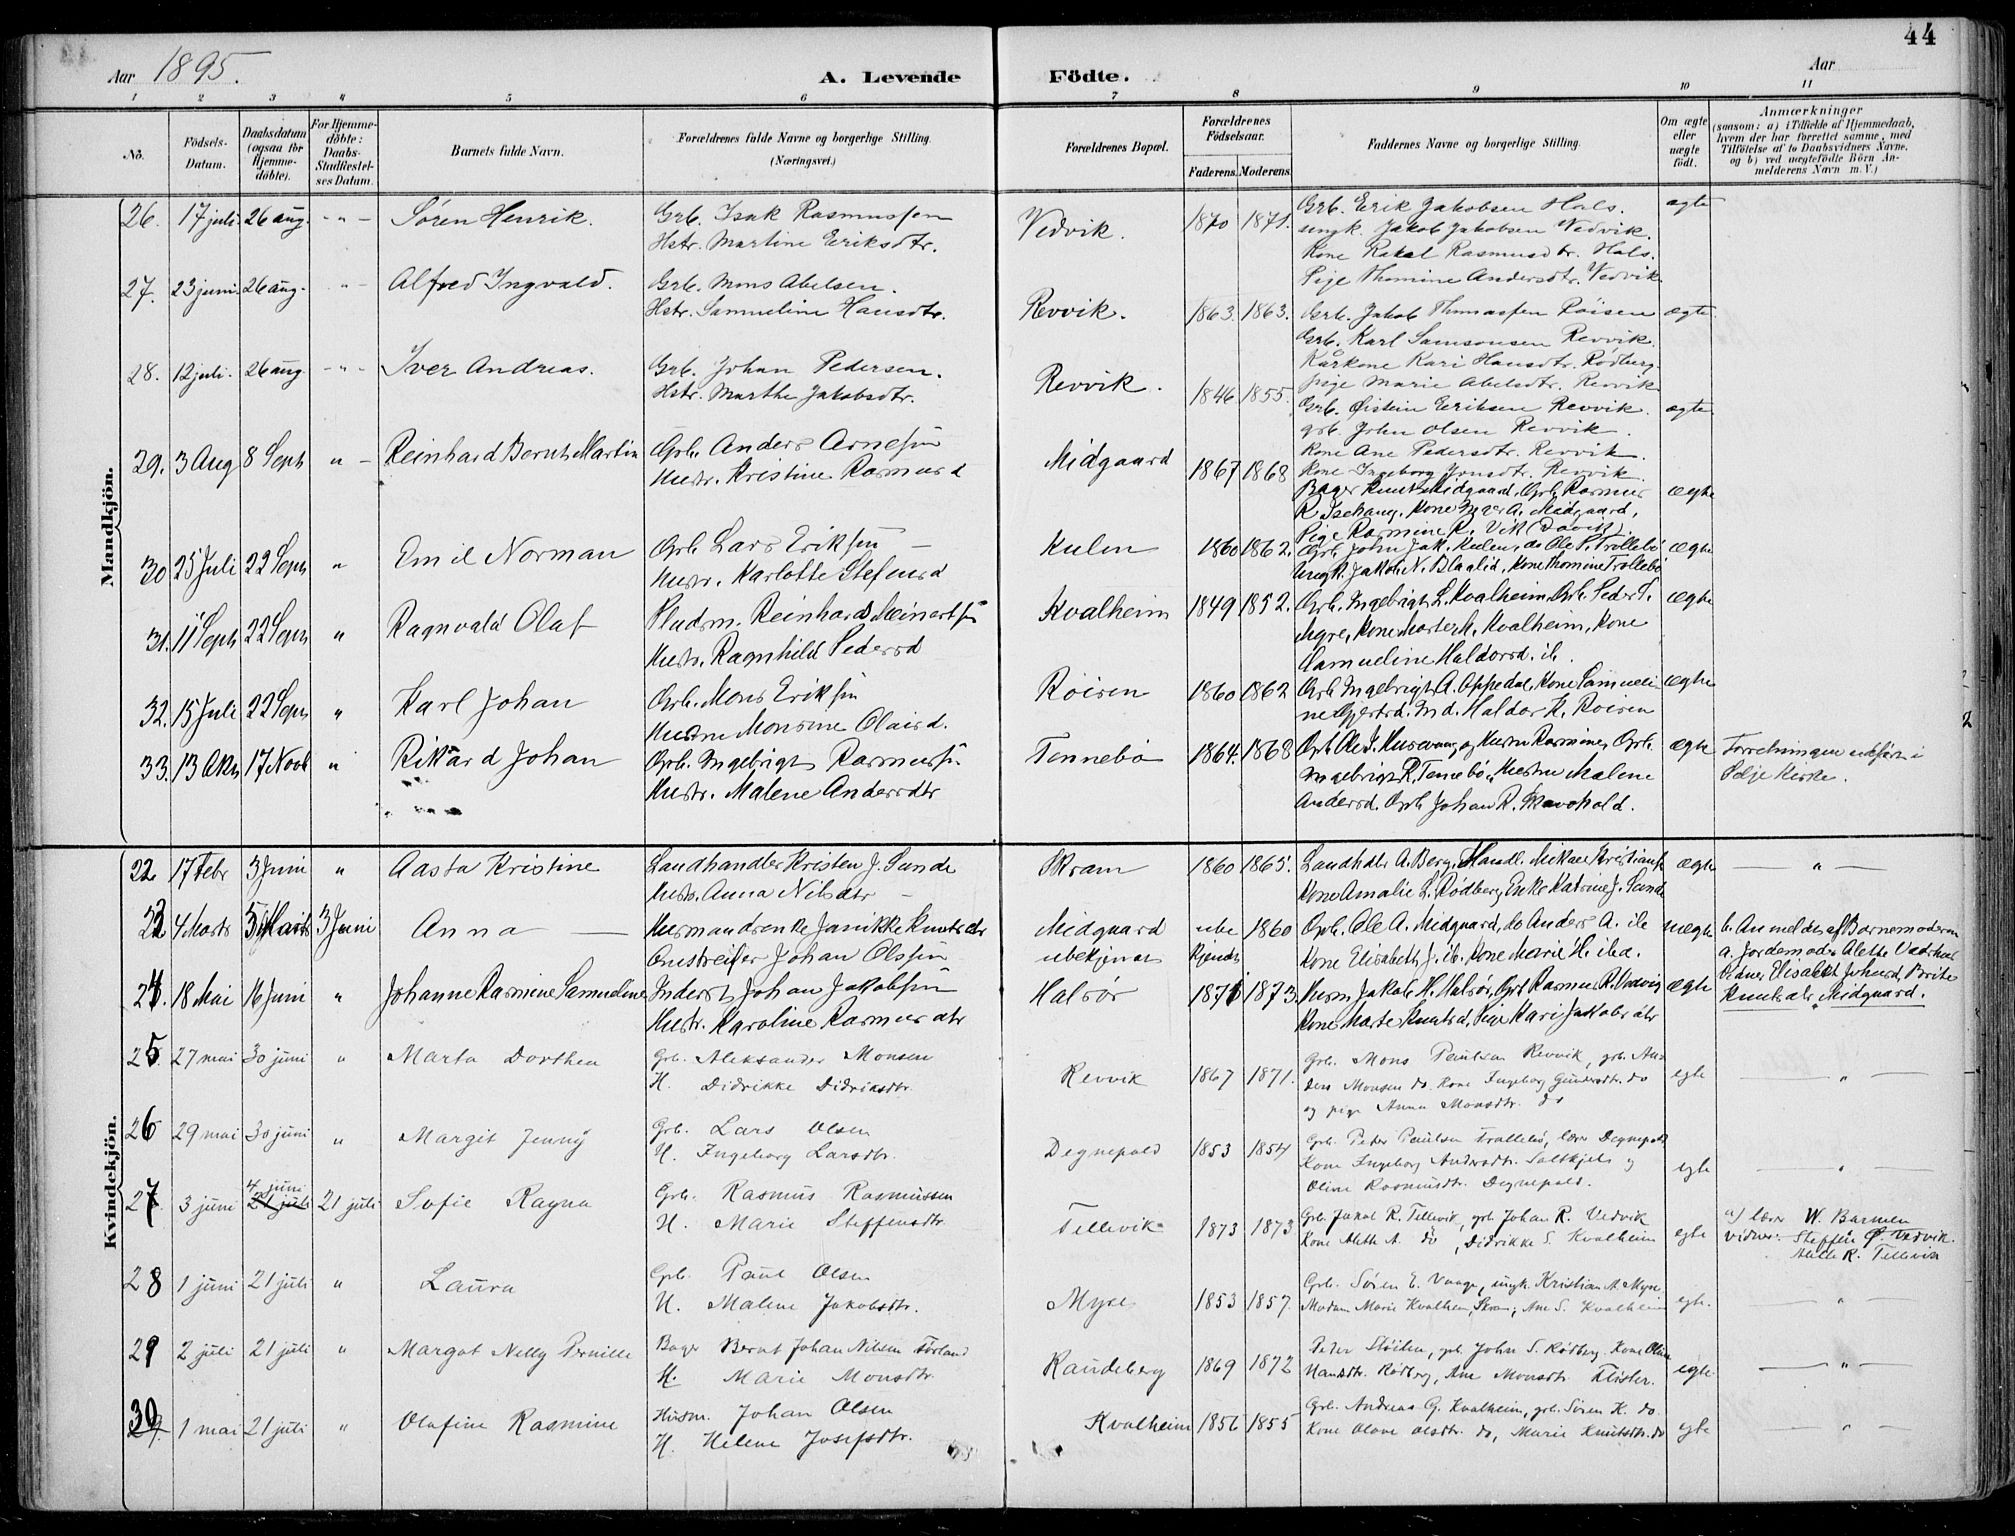 44
Aar 1895.
A. Levende Födte.
Aar
1 2 3 4 5 6 7 8 9 10 11
No. Födsels-Datum. Daabsdatum (ogsaa for Hjemme-döbte). For Hjemme-döbte: Daabs-Stadfæstel-ses Datum. Barnets fulde Navn. Forældrenes fulde Navne og borgerlige Stilling. (Næringsvei.) Forældrenes Bopæl. Forældrenes Födselsaar. Faderens. Moderens. Faddernes Navne og borgerlige Stilling. Om ægte eller uægte födt. Anmærkninger (saasom: a) i Tilfælde af Hjemmedaab, hvem der har forrettet samme, med Tilföielse af to Daabsvidners Navne, og b) ved uægtefödte Börn An-melderens Navn m. V.)
Mandkjön.
26. 17 juli 26 aug. - " - Søren Henrik. Grb. Isak Rasmussen Vedvik. 1870 1871. Grb. Erik Jakobsen Hals. ægte
Hstr. Martine Eriksdtr. ungk. Jakob Jakobsen Vedvik.
Kone Rakel Rasmusdtr. Hals.
Pige Thomine Andersdtr. Vedvik
27. 23 juni. 26 aug. - " - Alfred Ingvald. Grb. Mons Abelsen. Revvik. 1863. 1863. Grb. Jakob Thomassen Røisen ægte
Hstr. Samueline Hansdtr. Grb. Karl Samsonsen Revvik.
Kårkone Kari Hansdtr. Rødberg.
pige Marie Abelsdtr. Revvik
28. 12 juli. 26 aug. - " - Iver Andreas. Grb. Johan Pedersen. Revvik. 1846 1855. Grb. Øistein Eriksen Revvik. ægte
Hstr. Marthe Jakobsdtr. grb. John Olsen Revvik.
Kone Ane Pedersdtr. Revvik.
Kone Ingeborg Jonsdtr. Revvik.
29. 3 Aug 8 Septr " - Reinhard Bernt Martin Grb. Anders Arnesen Midgaard 1867 1868 Bager Knut Midgaard, Grb. Rasmus ægte
Hustr. Kristine Rasmusd Kone A. Midgaard,
Pige Rasmine R. Vik
30 25 Juli 22 Septr " Emil Norman Grb. Lars Eriksen Kulen 1860 1862. Grb. John Jak. Kulen, do Ole P. Trollebø ægte
Hustr. Karlotte Stefensd Ungk. Jakob N. Blaalid, Kone Thomine Trollebø
31. 11 Septr 22 Septr " Ragnvald Olaf Pladsm. Reinhard Meinertsen Kvalheim 1849 1852. Grb. Ingebrigt L. Kvalheim, Grb. Peder ægte
Hustr. Ragnhild Pedersd Myre, Kone Marte Kvalheim, Kone
Samueline Haldorsd. ib.
32. 15 Juli 22 Septr " Karl Johan Grb. Mons Eriksen Røisen 1860 1862 Grb. Ingebrigt A. Oppedal, Kone Samueli- ægte
Hustru Monsine Olaisd. ne Gjertsd. Haldor K. Røisen
33. 13 Okt 17 Novb " Rikard Johan Grb. Ingebrigt Rasmussen Tennebø 1864. 1868 Grb. Ole J. Husevaag og Hustru Rasmine, Grb. ægte Forretningen udført i
Hustr. Malene Andersdtr Ingebrigt R. Tennebø, Hustru Malene Selje Kirke.
Andersd. Grb. Johan R.
Kvindekjön.
22 17 Febr 3 Juni " Aasta Kristine Landhandler Kristen J. Sunde Skram 1860 1865. Landhdlr. A. Berg, Handl. Mikael ægte — " —
Hustr. Anna Nilsdtr Kone Amalie L. Rødberg, Enke Katrine J. Sunde
23 4 Marts 5 Marts 3 Juni Anna Husmandsenke Janikke Knutsdtr Midgaard ube 1860 Grb. Ole A. Midgaard, do Anders A. ib uægte b. Anmeldt af Barnemoderen
Omstreifer Johan Olssen ubekjendt kjendt Kone Elisabeth J. ib. Kone Marie H. ibd. a. Jordemoder Alette
24 18 Mai 16 Juni " Johanne Rasmine Samueline Inderst Johan Jakobsen Halsør 1871 1873. Husm. Jakob H. Halsør, Grb Rasmus R. ægte Vidner Elisabet Johnsd, Brite
Hustr. Karoline Rasmusdtr Kone Marte Knutsd, Pige Kari Jakobsdtr Knutsdtr, Midgaard.
25 27 mai 30 juni " Marta Dorthea Grb. Aleksander Monsen Revvik 1867 1871. Grb. Mons Paulsen Revvik, grb. An- egte — " —
H. Didrikke Didriksdtr. ders Monsen do Kone Ingeborg Gundersdtr. do
og pige Anna Monsdtr. do
26 29 mai 30 juni " Margit Jenny Grb. Lars Olsen Degnepold 1853 1854 Grb. Peter Paulsen Trollebø, lærer Degnepold egte — " —
H. Ingeborg Larsdtr. Kone Ingeborg Andersdtr. Saltkjels og
Oline Rasmusdtr. Degnepold.
27 3 juni 4 juni 21 juli 21 juli Sofie Ragna Grb. Rasmus Rasmussen Tellevik 1873 1873 Grb. Jakob R. Tellevik, grb. Johan R. Vedvik egte a) lærer W. Barmen
H. Marie Steffensdtr. Kone Aleth A. do, Didrikke S. Kvalheim vidner: Steffen Ø. Vedvik.
Aleth R. Tellevik
28 1 juni 21 juli " Laura Grb. Paul Olsen Myre 1853 1857. Grb. Søren E. Vaage, ungk. Kristian A. Myre egte. — " —
H. Malene Jakobsdtr. Madam Marie Kvalheim, Skram, Ane S. Kvalheim
29 2 juli 21 juli " Margot Nelly Pernille Bager Bernt Johan Nilsen Førland Raudeberg 1869 1872 Peder Støilen, grb. John S. Rødberg. Kone Oline egte — " —
H. Marie Monsdtr. Hansdtr. Rødberg, Ane Monsdtr. Flister.
30 1 mai 21 juli " Olafine Rasmine Husm. Johan Olsen Kvalheim 1856 1855 Grb. Andreas G. Kvalheim, grb. Søren K. do. egte — " —
H. Helene Josefsdtr. Kone Olave Olsdtr. do, Marie Knutsdtr. do